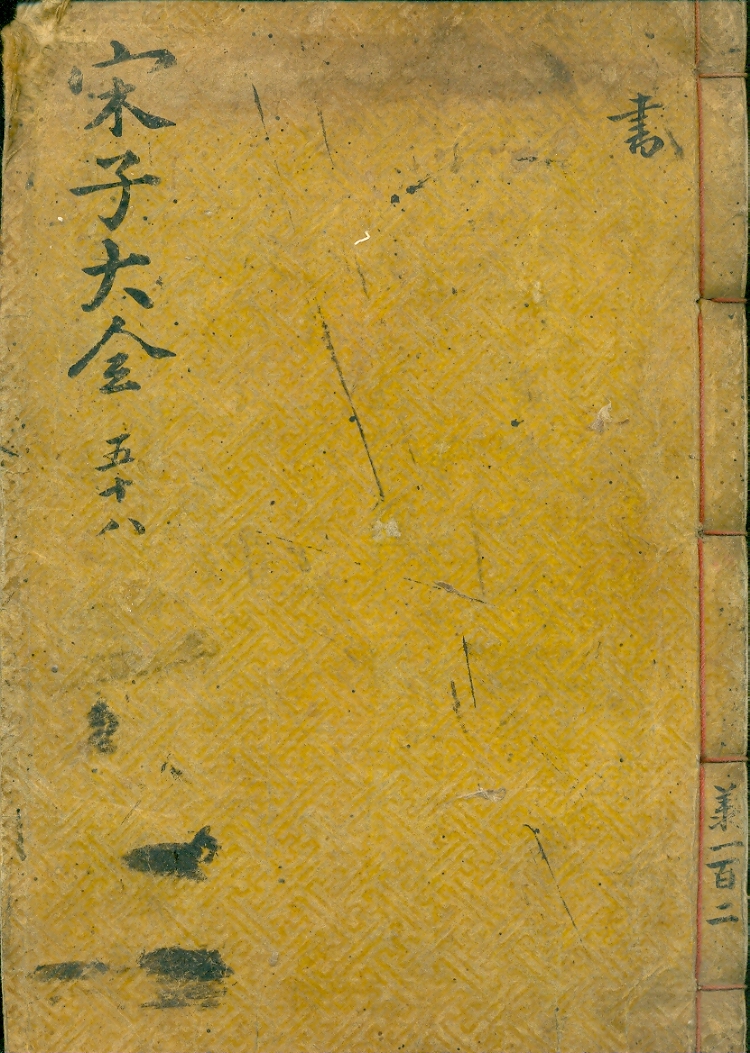 宋子大全 五十八
書
一百二